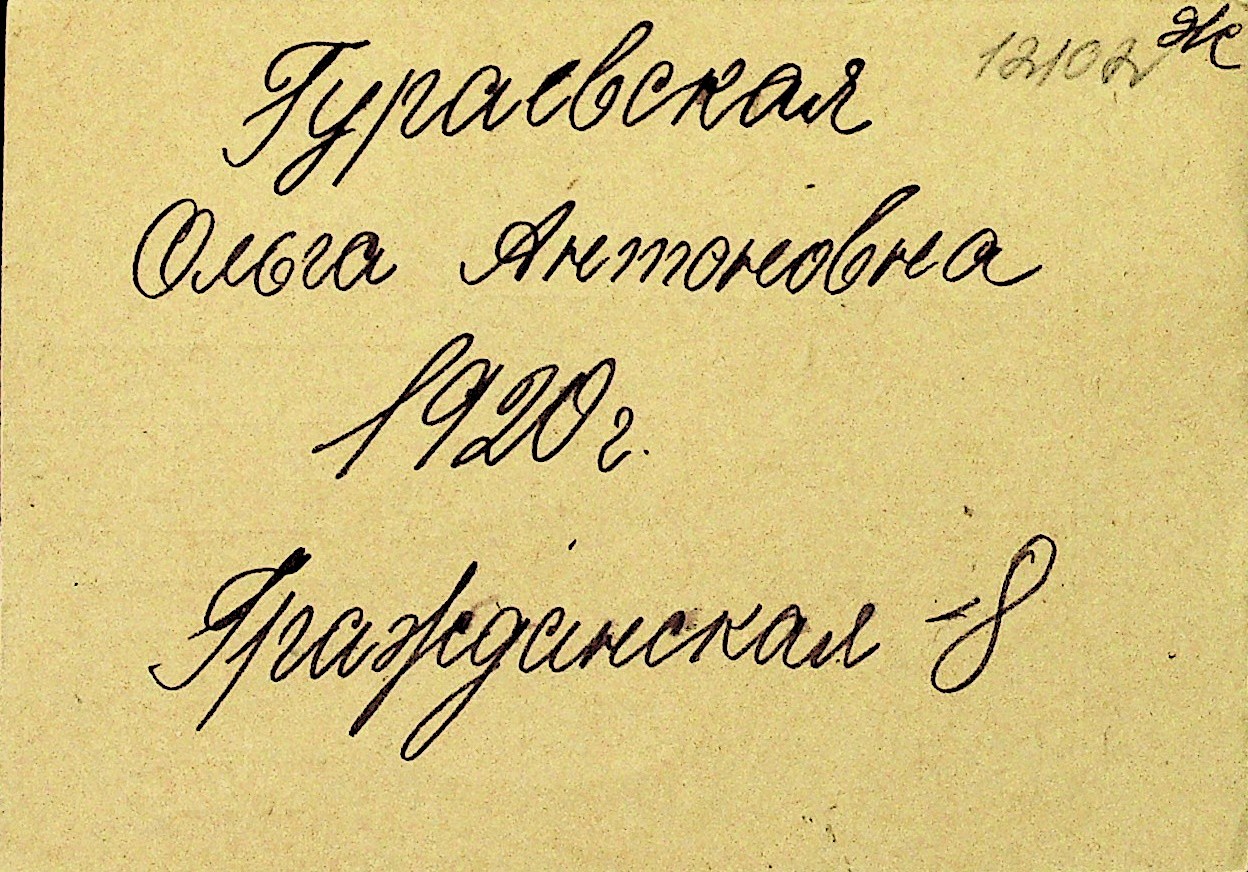 12102 Ж
Гураевская
Ольга Антоновна
1920 г.
Гражданская - 8